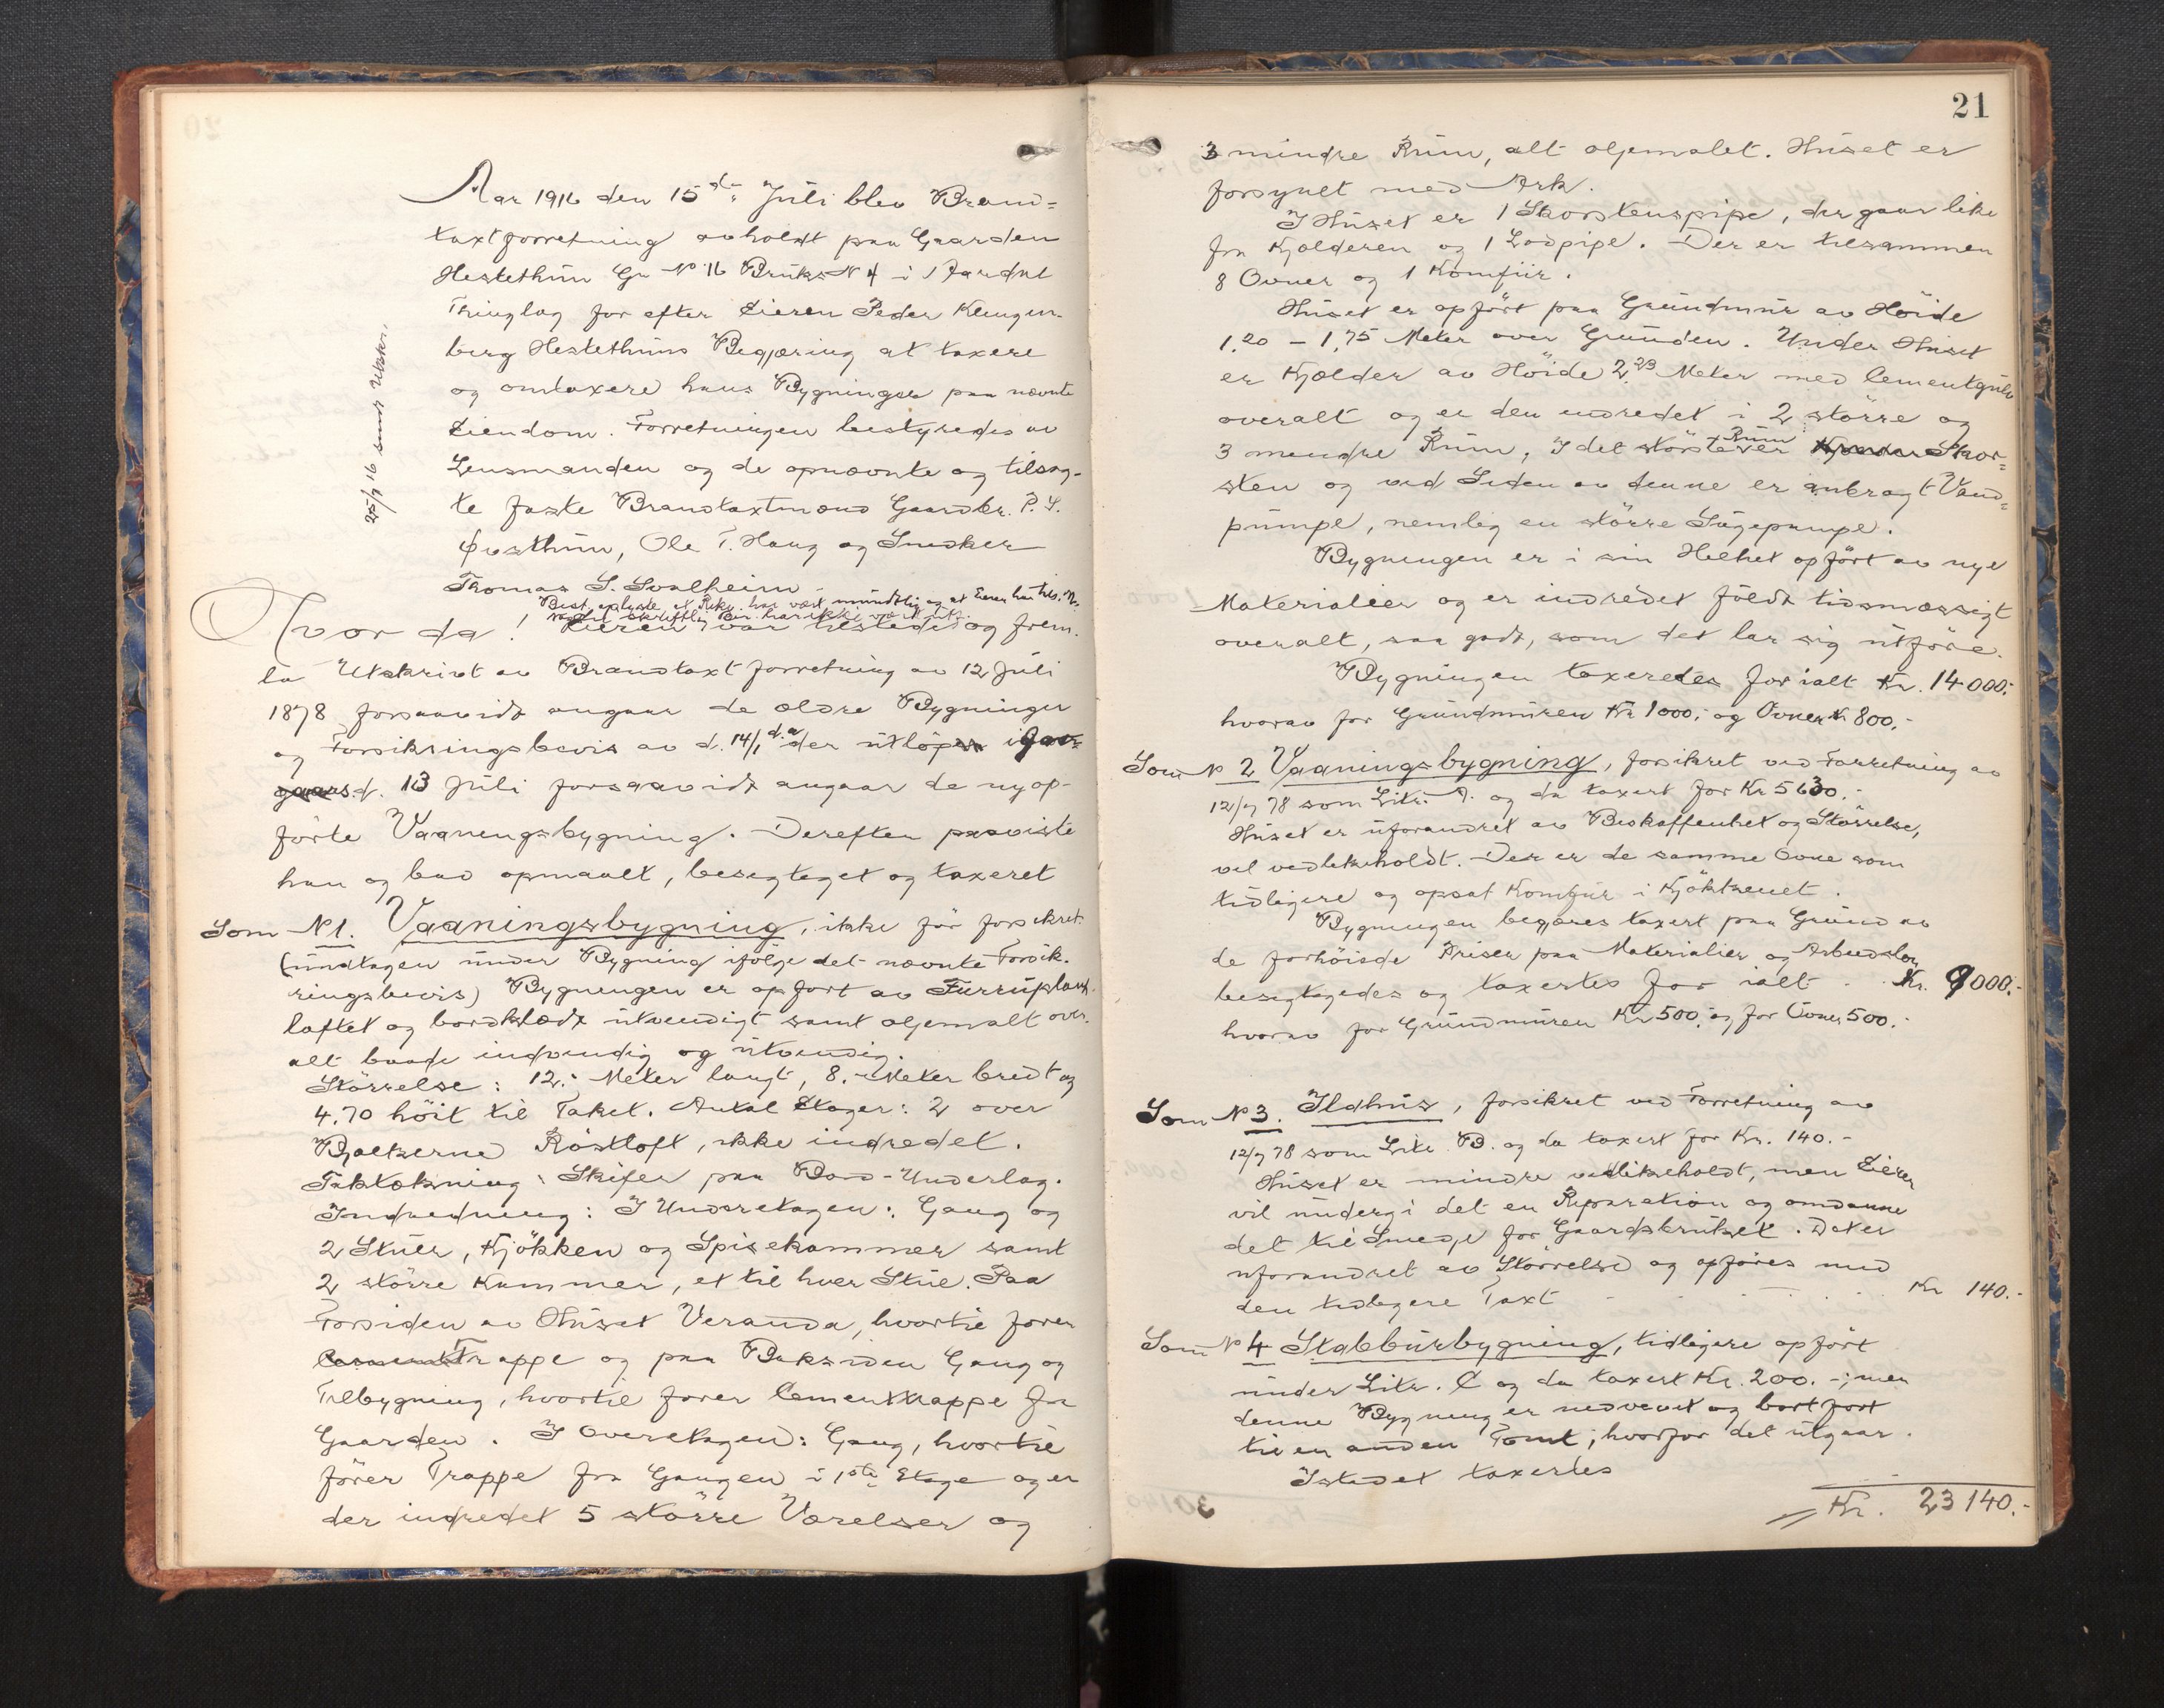 Aar 1916 den 15de Juli blev Brand=
taxtforretning avholdt paa Gaarden
Hestethun Gr No 16 Bruks No 4 i Aardal
Thinglag for efter Eieren Peder Klingen-
berg Hestethuns Begjæring at taxere
og omtaxere hans Bygninger paa nævnte
Eiendom. Forretningen bestyredes av
Lensmanden og de opnævnte og tilsag-
te faste Brandtaxtmænd Gaardbr. P. S.
Øvsthun, Ole T. Haug og Snedker
Thomas S. Svalheim
25/7 16 sendt Utskr.
Best. oplyste at Rekv. har vært mundtlig og at Eieren har
nogen skriftlig Ber. har ikke vært
Hvor da! Eieren var tilstede og frem-
la Utskrivt av Brandtaxtforretning av 12 Juli
1878 forsaavidt angaar de ældre Bygninger
og Forsikringsbevis av d. 14/1 d.a. der utløper igaar
d. 13 Juli forsaavidt angaar de nyop-
førte Vaaningsbygning. Derefter paaviste
han og blev opmaalt, besigtiget og taxeret
Som No 1. Vaaningsbygning, ikke før forsikret
(undtagen under Bygning ifølge det nævnte Forsik-
ringsbevis) Bygningen er opført av Furruplank,
laftet og bordklædt utvendigt samt oljemalt over-
alt baade indvendig og utvendig.
Størrelse: 12.- Meter langt, 8.- Meter bredt og
4.70 høit til Taket. Antal Etager: 2 over
Bjælkerne Røstloft, ikke indredet.
Taktækning: Skifer paa Bord-Underlag.
Indredning: I Underetagen: Gang og
2 Stuer, Kjøkken og Spisekammer samt
2 større Kammer, et til hver Stue. Paa
Forsiden av Huset Veranda, hvortil fører
Cement Trappe og paa Baksiden Gang og
Tilbygning, hvortil fører Cementtrappe fra
Gaarden. I Overetagen: Gang, hvortil
fører Trappe fra Gangen i 1ste Etage og er
der indredet 5 større Værelser og
21
3 mindre Rum, alt oljemalet. Huset er
forsynet med Ark.
I Huset er 1 Skorstenspipe, der gaar like
fra Kjælderen og 1 Lodpipe. Der er tilsammen
8 Ovner og 1 Komfur.
Huset er opført paa Grundmur av Høide
1.20 - 1.75 Meter over Grunden. Under Huset
er Kjælder av Høide 2.23 Meter med Cementgulv
overalt og er den indredet i 2 større og
3 mindre Rum, I det største Rum er Skor=
sten og ved Siden av denne er anbragt Vand=
pumpe, nemlig en større Sugepumpe.
Bygningen er i sin Helhet opført av nye
Materialier og er indredet fuldt tidsmæssigt
overalt, saa godt, som det lar sig utføre.
Bygningen taxeredes for ialt Kr. 14000.-
hvorav for Grundmuren Kr 1000,- og Ovner Kr 800.-
Som No 2 Vaaningsbygning, forsikret ved Forretning av
12/7 78 som Litr. A. og da taxert for Kr 5630.-
Huset er uforandret av Beskaffenhet og Størrelse,
vel vedlikeholdt. Der er de samme Ovne som
tidligere og opsat Komfur i Kjøkkenet.
Bygningen begjæres taxert paa Grund av
de forhøiede Priser paa Materialier og Arbeidsløn
besigtigedes og taxertes for ialt . . Kr. 9000.-
hvorav for Grundmuren Kr 500.- og for Ovner 500.-
Som No 3. Ildhus, forsikret ved Forretning av
12/7 78 som Litr. B. og da taxert for Kr. 140.-
Huset er mindre vedlikeholdt, men Eieren
vil undergi det en Reparation og omdanne
det til Smedje for Gaardsbruket. Det er
uforandret av Størrelse og opføres med
den tidligere Taxt . . . . Kr 140.-
Som No 4 Stabbursbygning, tidligere opført
under Litr. C og da taxert Kr. 200.-; men
denne Bygning er nedrevet og bortført
til en anden Tomt; hvorfor det utgaar.
Istedet taxertes
Kr. 23140.-